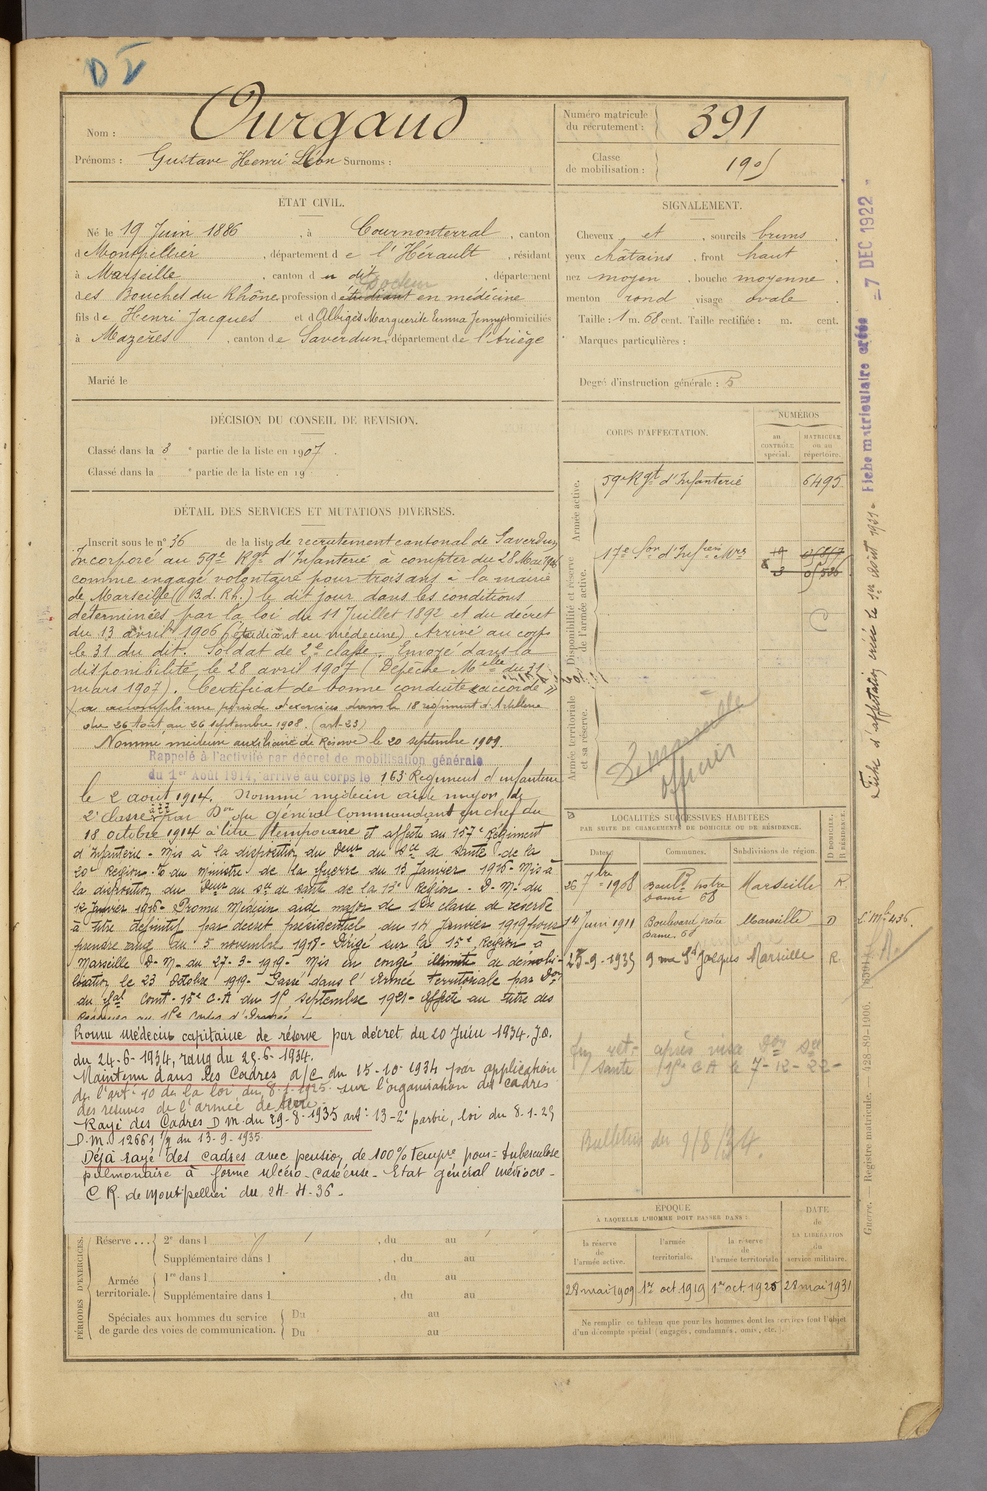 DV
Nom : Ourgaud
Prénoms : Gustave Henri Léon Surnoms :
Numéro matricule
du recrutement : 391
Classe
de mobilisation : 1905
ÉTAT CIVIL.
Né le 19 Juin 1886 , à Cournonterral , canton
de Montpellier , département de l'Hérault , résidant
à Marseille , canton du dit , département
des Bouches du Rhône, profession d'étudiant en médecine
Docteur
fils de Henri Jacques et d'Albigès Marguerite Emma Jenny domiciliés
à Mazères , canton de Saverdun, département de l'Ariège
Marié le
SIGNALEMENT.
Cheveux et , sourcils bruns ,
yeux chatains , front haut ,
nez moyen , bouche moyenne ,
menton rond visage ovale .
Taille : 1 m. 68 cent. Taille rectifiée : m. cent.
Marques particulières :
Degré d'instruction générale : 5
DÉCISION DU CONSEIL DE REVISION.
Classé dans la 3 e partie de la liste en 1907 .
Classé dans la e partie de la liste en 19
DÉTAIL DES SERVICES ET MUTATIONS DIVERSES.
Inscrit sous le n° 36 de la liste de recrutement cantonal de Saverdun
Incorporé au 59e Rgt d'Infanterie à compter du 28 Mai 1906
comme engagé volontaire pour trois ans à la mairie
de Marseille (B.d.Rh.) le dit jour dans les conditions
déterminées par la loi du 11 Juillet 1892 et du décret
du 13 avril 1906 (étudiant en médecine) Arrivé au corps
le 31 du dit. Soldat de 2e classe. Envoyé dans la
disponibilité le 28 avril 1907 (Dépêche Mlle du 31
mars 1907). Certificat de bonne conduite "accordé"
a accompli une période d'exercices dans le 18 régiment d'Artillerie
du 26 Août au 26 septembre 1908. (art. 23)
Nommé médecin auxiliaire de Réserve le 20 septembre 1909.
Rappelé à l'activité par décret de mobilisation générale
du 1er Août 1914, arrivé au corps le 163 Regiment d'infanterie
le 2 août 1914. Nommé médecin aide major de
2e classe par Don du Général Commandant en chef du
18 octobre 1914 à titre temporaire et affecté au 157e Régiment
d'Infanterie - Mis à la disposition du Deur du Sce de santé de la
20e Région. D. du ministre de la Guerre du 13 Janvier 1916 - Mis à
la disposition du Deur du Sce de santé de la 15e Région - D.M. du
12 Janvier 1916 - Promu Médecin aide major de 1ère classe de réserve
à titre définitif par décret présidentiel du 14 Janvier 1919 pour
prendre rang du 5 novembre 1918 - Dirigé sur la 15e Région à
Marseille D.M. du 27-3-1919 - Mis en congé illimité de démobi-
lisation le 23 Octobre 1919 - Passé dans l'Armée Territoriale par Don
du Gal Comt. 15e C.A du 1er septembre 1921 - affecté au titre des
Promu Médecin capitaine de réserve par décret du 20 Juin 1934. J.O.
du 24-6-1934, rang du 25-6-1934.
Maintenu dans les Cadres a/c du 15-10-1934 par application
de l'art. 10 de la loi du 8-1-1925 sur l'organisation des cadres
des réserves de l'armée de terre.
Rayé des Cadres D.M. du 29-8-1935 art. 13-2e partie, loi du 8-1-25
D.M. 12661 1/7 du 13-9-1935
Déjà rayé des cadres avec pension de 100% Tempre pour : tuberculose
pulmonaire à forme ulcéro-caséeuse - Etat général médiocre -
C.R. de Montpellier du 24-4-36 -
PÉRIODES D'EXERCICES.
Réserve... 2e dans l , du au
Supplémentaire dans l , du au
Armée
territoriale. 1re dans l , du au
Supplémentaire dans l , du au
Spéciales aux hommes du service
de garde des voies de communication. Du au
Du au
CORPS D'AFFECTATION.
NUMÉROS
au
contrôle
spécial.
matricule
ou au
répertoire.
Armée active.
59e Rgt d'Infanterie 6495
Disponibilité et réserve
de l'armée active.
17e Son d'Infiers Mres
Armée territoriale
et sa réserve.
De Marseille
officier
LOCALITÉS SUCCESSIVES HABITÉES
PAR SUITE DE CHANGEMENT DE DOMICILE OU DE RÉSIDENCE.
Dates. Communes. Subdivisions de région. D DOMICILE. R RÉSIDENCE.
26 7bre 1908 Boulrd notre Dame 68 Marseille R.
14 Juin 1911 Boulevard notre Dame, 68 Marseille D
25-9-1935 9 rue St Jacques Marseille R
après visa Don Sce
Santé 15e CA le 7-12-22-
Bulletin du 9/8/34.
ÉPOQUE
À LAQUELLE L'HOMME DOIT PASSER DANS :
la réserve
de
l'armée active.
l'armée
territoriale.
la réserve
de
l'armée territoriale
DATE
de
LA LIBÉRATION
du
service militaire.
28 mai 1909 1er oct. 1919 1er oct. 1925 28 mai 1931
Ne remplir ce tableau que pour les hommes dont les services font l'objet
d'un décompte spécial (engagés, condamnés, omis, etc.).
Fiche d'affectation créée le 1er Août 1931 - Fiche matriculaire créée - 7 DEC 1922 -
Guerre. — Registre matricule. 428-89-1906.